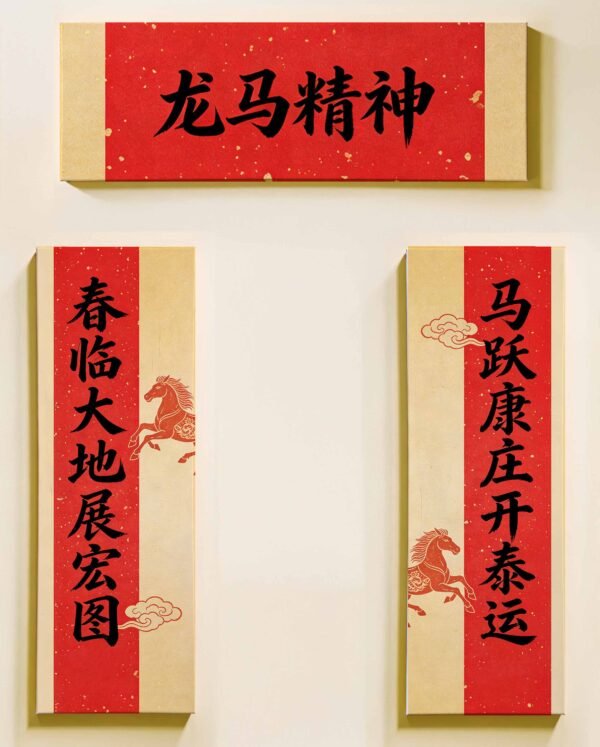 龙马精神
马跃康庄开泰运
春临大地展宏图